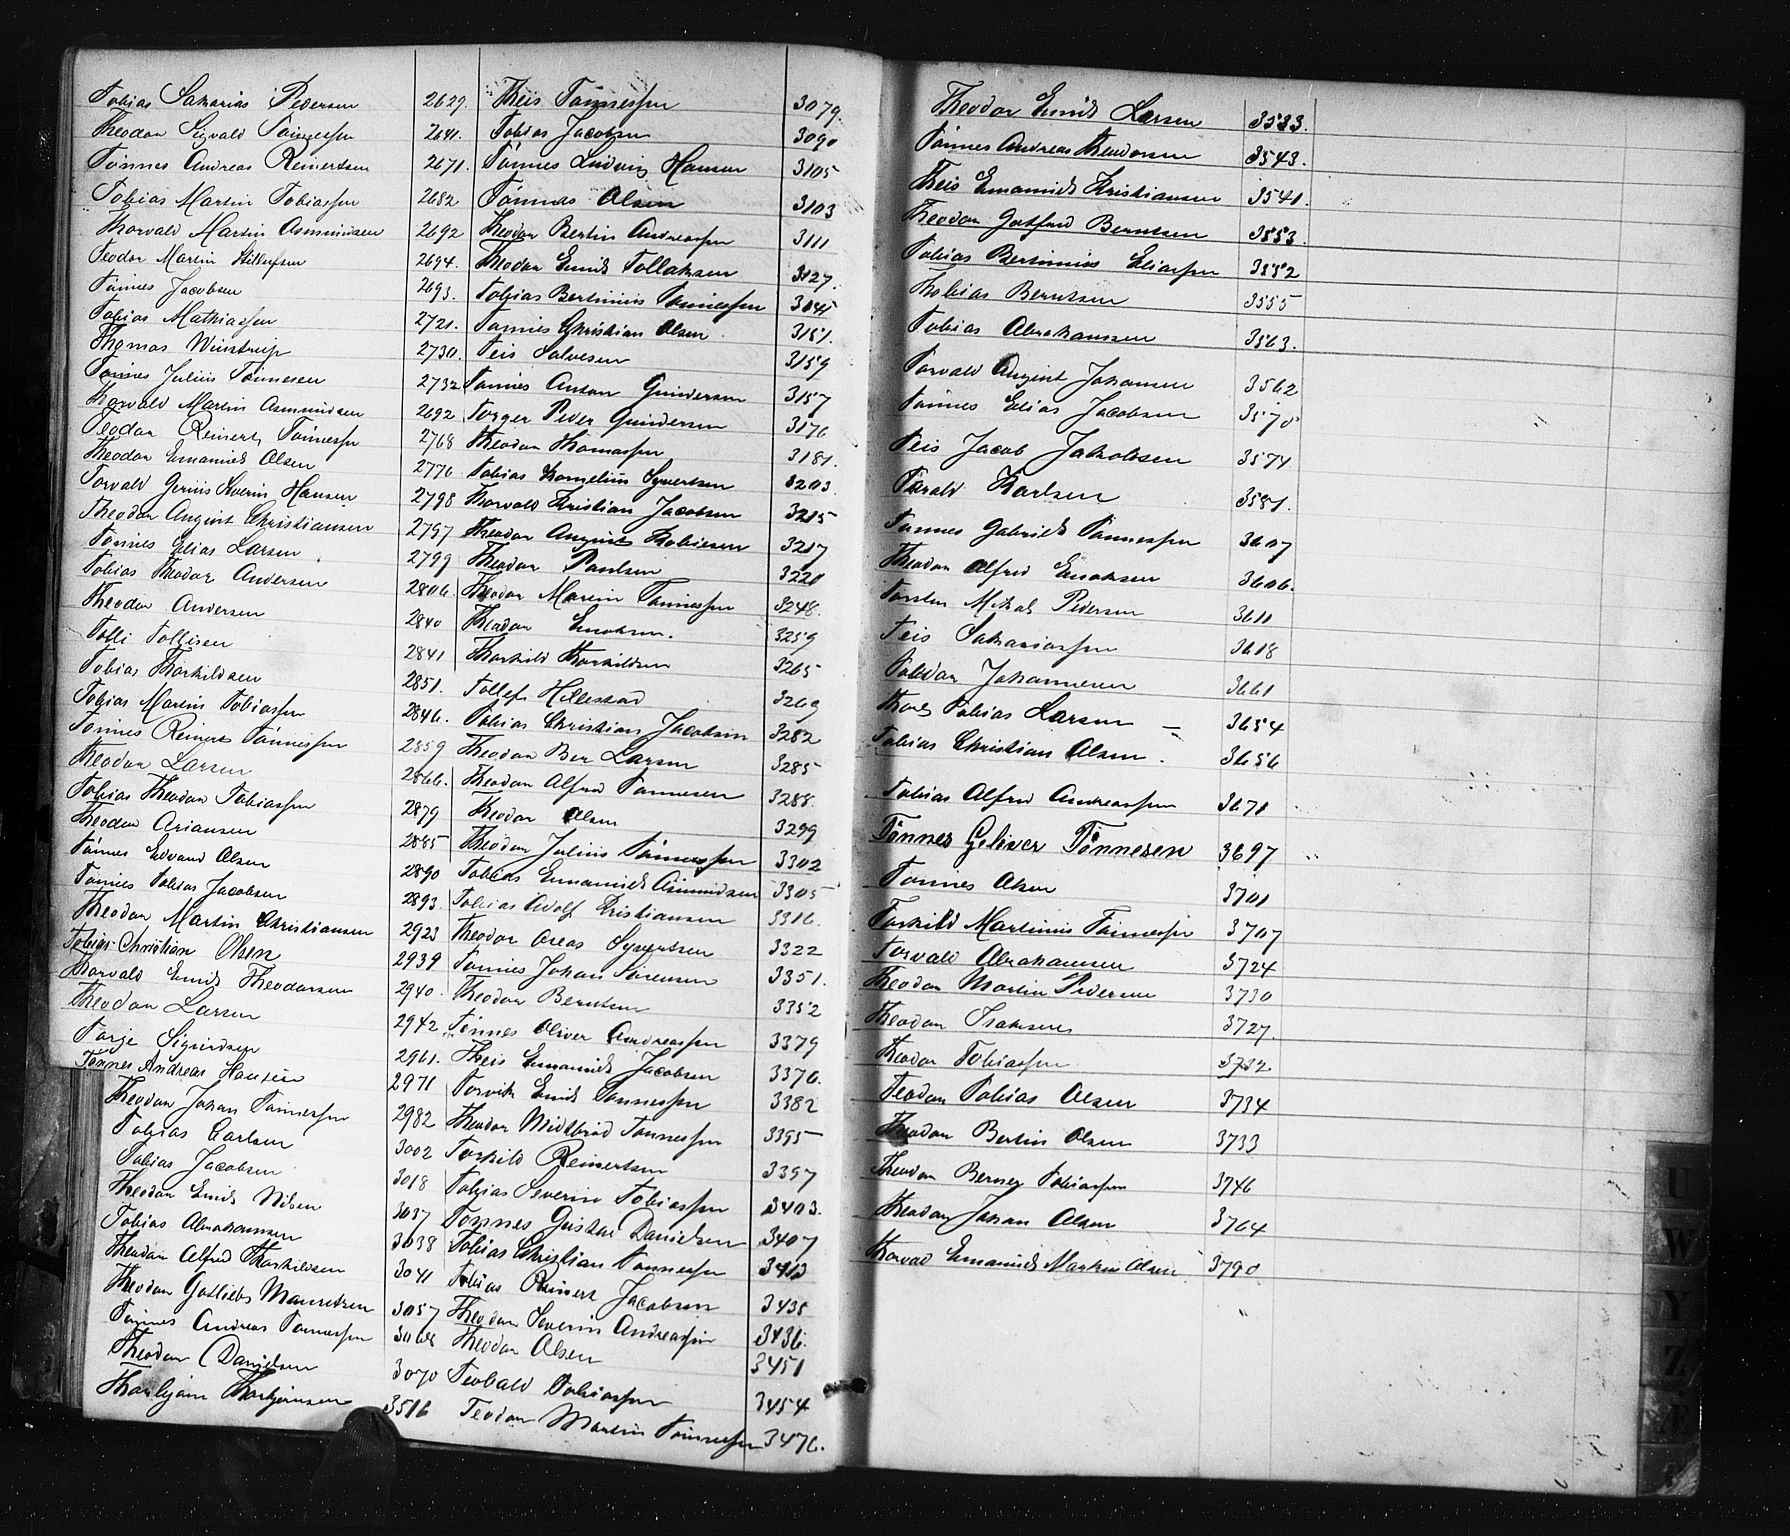 Tobias Sakarias Pedersen 2629.
Theodor Sigvald Tønnessen 2641.
Tønnes Andreas Reinertsen 2671.
Tobias Martin Tobiassen 2682
Thorvald Martin Asmundsen 2692
Teodor Martin 2694.
Tønnes Jacobsen 2693.
Tobias Mathiassen 2721.
Thomas 2730.
Tønnes Julius Tønnesen 2732
Thorvald Martin Asmundsen 2692
Teodor Reinert Tønnessen 2768
Theodor Emanuel Olsen 2776
Torvald Severin Hansen 2798
Theodor August Christiansen 2797
Tønnes Elias Larsen 2799
Tobias Theodor Andersen 2806
Theodor Andersen 2840
Tolli Tollisen 2841
Tobias Thorkildsen 2851.
Tobias Martin Tobiassen 2846.
Tønnes Reinert Tønnessen 2859
Theodor Larsen 2866.
Tobias Theodor Tobiassen 2879
Theodor Ariansen 2885
Tønnes Edvard Olsen 2890
Tønnes Tobias Jacobsen 2893.
Theodor Martin Christiansen 2923
Tobias Christian Olsen 2939
Thorvald Emil Theodorsen 2940.
Theodor Larsen 2942
Torje Sigurdsen 2961.
Tønnes Andreas Hansen 2971
Theodor Johan Tønnessen 2982
Tobias Carlsen 3002
Tobias Jacobsen 3018
Theodor Emil Nilsen 3037
Tobias Abrahamsen 3038
Theodor Alfred Thorkildsen 3041
Theodor Gotlieb Mauritsen 3057
Tønnes Andreas Tønnessen 3068
Theodor Danielsen 3070
Thorbjørn Thorbjørnsen 3516
Theis Tønnessen 3079.
Tobias Jacobsen 3090
Tønnes Ludvig Hansen 3105
Tønnes Olsen 3103
Theodor Bertin Andreassen 3111
Theodor Emil Tollaksen 3127.
Tobias Bertinius Tønnessen 3145
Tønnes Christian Olsen 3151.
Teis Salvesen 3159
Tønnes Anton Gundersen 3157
Torger Peder Gundersen 3176
Theodor Thomassen 3181.
Tobias Kornelius Syvertsen 3203.
Thorvald Kristian Jacobsen 3215
Theodor August Tobiesen 3217
Theodor Paulsen 3221
Theodor Martin Tønnessen 3248.
Theodor Enoksen. 3259
Thorkild Thorkildsen 3265
Tollef Hillestad 3269
Tobias Christian Jacobsen 3282
Theodor Ber Larsen 3285
Theodor Alfred Tønnesen 3288.
Theodor Olsen 3299
Theodor Julius Tønnessen 3302
Tobias Emanuel Asmundsen 3305
Tobias Adolf Kristiansen 3316.
Theodor Oreas Syvertsen 3322
Tønnes Johan Sørensen 3351.
Theodor Berntsen 3352
Tønnes Oliver Andreassen 3379
Theis Emanuel Jacobsen 3376.
Torvik Emil Tønnessen 3382
Theodor Midtbrød Tønnessen 3395
Torkild Reinertsen 3397
Tobias Severin Tobiassen 3403.
Tønnes Gustav Danielsen 3407
Tobias Christian Tønnessen 3413
Tobias Reinert Jacobsen 3435
Theodor Severin Andreassen 3436.
Theodor Olsen 3451
Teobald Tobiassen 3454
Teodor Martin Tønnessen 3476.
Theodor Emil Larsen 3533.
Tønnes Andreas Theodorsen 3543.
Theis Emanuel Kristiansen 3541.
Theodor Gotfred Berntsen 3553.
Tobias Bertinius Eliassen 3552
Thobias Berntsen 3555
Tobias Abrahamsen 3563.
Torvald August Johansen 3562
Tønnes Elias Jacobsen 3570
Teis Jacob Jakobsen 3574
Tarald Karlsen 3581.
Tønnes Gabriel Tønnessen 3607
Theodor Alfred Enoksen 3606.
Torsten Mikal Pedersen 3611
Teis Sakariassen 3618
Teodor Johannesen 3661
Thore Tobias Larsen – 3654
Tobias Christian Olsen. 3656
Tobias Alfred Andreassen 3671
Tønnes Geliver Tønnesen 3697
Tønnes Olsen 3701
Torkild Martinius Tønnessen 3707
Torvald Abrahamsen 3724
Theodor Martin Pedersen 3730
Theodor Isaksen 3727.
Theodor Tobiassen 3732.
Teodor Tobias Olsen 3734
Theodor Bertin Olsen 3733
Theodor Berner Tobiassen 3746
Theodor Johan Olsen 3764
Thorvald Emanuel Martin Olsen 3790
U
W
Y
Z
Æ